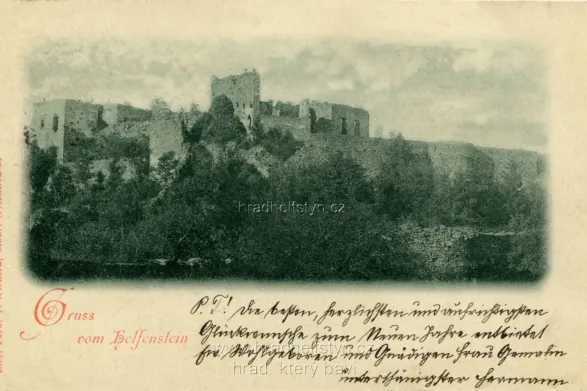 hradhelfstyn.cz
Gruss
vom Helfenstein
P. T.! Die besten, herzlichsten und aufrichtigsten
Glückwünsche zum Neuen Jahre entbietet
Ew. Wohlgeboren und Gnädigen Frau Gemalin
unterthänigster Hermann
www.hradhelfstyn.cz
hrad, který baví